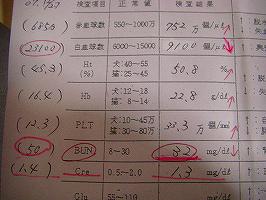 検査項目 正常値
(6850) 赤血球数 550～1000万 752万 個/μℓ
(23100) 白血球数 6000～15000 9100 個/μℓ
(45.3) Ht (%) 犬:40～55 猫:25～45 50.8 %
(16.4) Hb 犬:12～18 猫:8～14 22.8 g/dℓ
(12.3) PLT 犬:10～45万 猫:30～80万 33.3 万
(50) BUN 8～30 32 mg/dℓ
(1.4) Cre 0.5～2.0 1.3 mg/dℓ
Glu 55～110 mg/dℓ